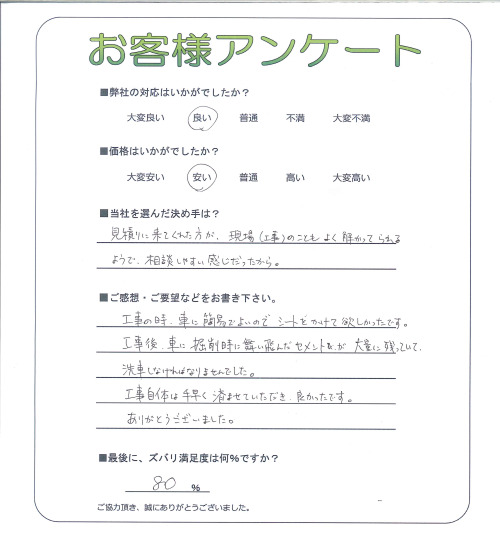 お客様アンケート
■弊社の対応はいかがでしたか？
大変良い 良い 普通 不満 大変不満
■価格はいかがでしたか？
大変安い 安い 普通 高い 大変高い
■当社を選んだ決め手は？
見積りに来てくれた方が、現場(工事)のこともよく解かってられる
ようで、相談しやすい感じだったから。
■ご感想・ご要望などをお書き下さい。
工事の時、車に簡易でよいので シートをかけて欲しかったです。
工事後、車に 掘削時に舞い飛んだセメントが 大量に残っていて、
洗車しなければなりませんでした。
工事自体は手早く済ませていただき、良かったです。
ありがとうございました。
■最後に、ズバリ満足度は何%ですか？
80 %
ご協力頂き、誠にありがとうございました。